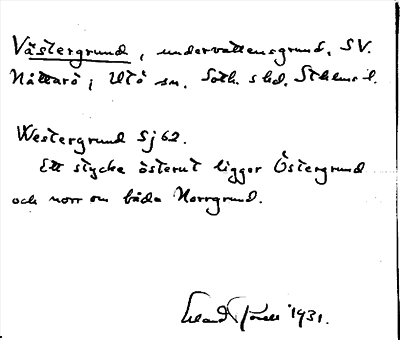 Västergrund, undervattensgrund, SV.
Nåttarö, Utö sn, Soth. skd, Sthlms l.
Westergrund Sj 62.
Ett stycke österut ligger Östergrund
och norr om båda Norrgrund.
1931.